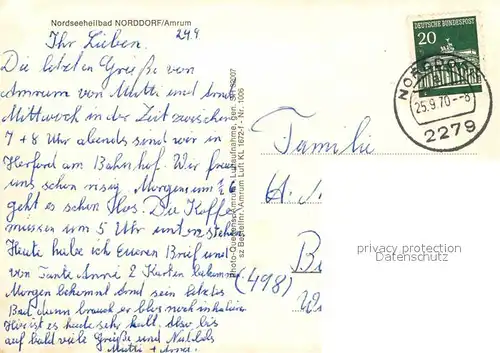 Nordseeheilbad NORDDORF/Amrum
24.9
Ihr Lieben.
Die letzten Grüße von
Amrum von Mutti und
Mittwoch in der Zeit zwischen
7 + 8 Uhr abends sind wir in
Herford am Bahnhof. Wir freuen
uns schon riesig. Morgens um
geht es schon los. Die Koffer
müssen um 5 Uhr unten stehen
Heute habe ich Eueren Brief und
von Tante Anni 2 Karten bekommen
Morgen bekommt
Bad dann brauch er blos noch inhalieren
Hier ist es heute sehr kalt. Also, bis
auf bald viele Grüße und
Mutti +
Amrum Luft KL 1672-f - Nr. 1006
DEUTSCHE BUNDESPOST
20
NORDDORF
25.9.70 -8
2279
Familie
(498)
privacy protection
Datenschutz